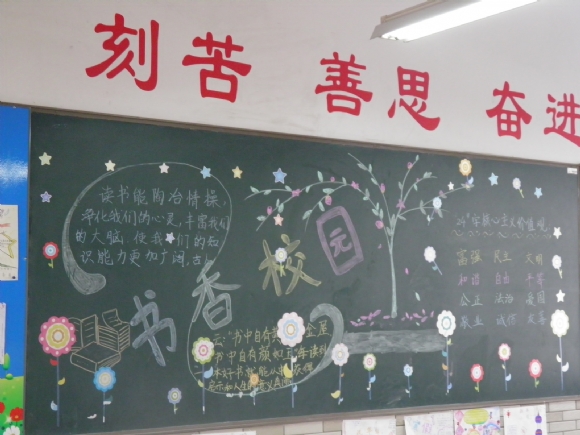 刻苦 善思 奋进
读书能陶冶情操,
净化我们的心灵,丰富我们
的大脑,使我们的知
识能力更加广阔,古人
书香校园
云:"书中自有黄金屋
书中自有颜如玉"
24字核心主义价值观
富强 民主 文明
和谐 自由 平等
公正 法治 爱国
敬业 诚信 友善